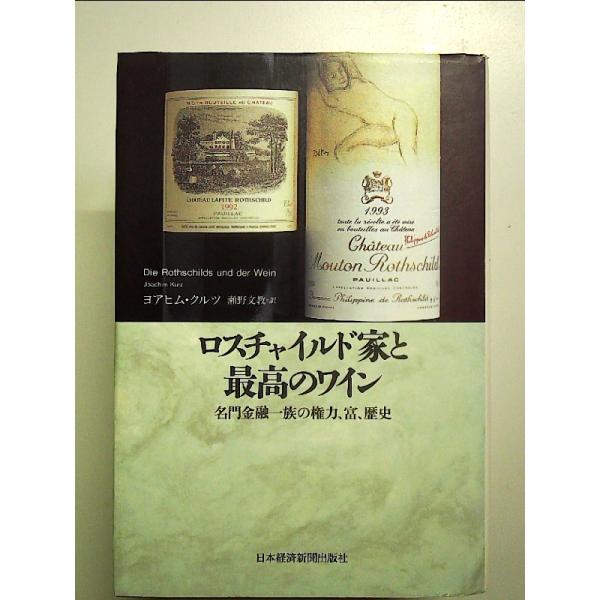 MIS EN BOUTEILLE AU CHATEAU
CHATEAU LAFITE ROTHSCHILD
1992
PAUILLAC
1993
toute la récolte a été mise
en bouteilles au Château
Château
Mouton Rothschild
PAUILLAC
APPELLATION PAUILLAC CONTROLÉE
Baronne Philippine de Rothschild g.f.a.
Die Rothschilds und der Wein
Joachim Kurz
ヨアヒム・クルツ 瀬野文教・訳
ロスチャイルド家と
最高のワイン
名門金融一族の権力、富、歴史
日本経済新聞出版社